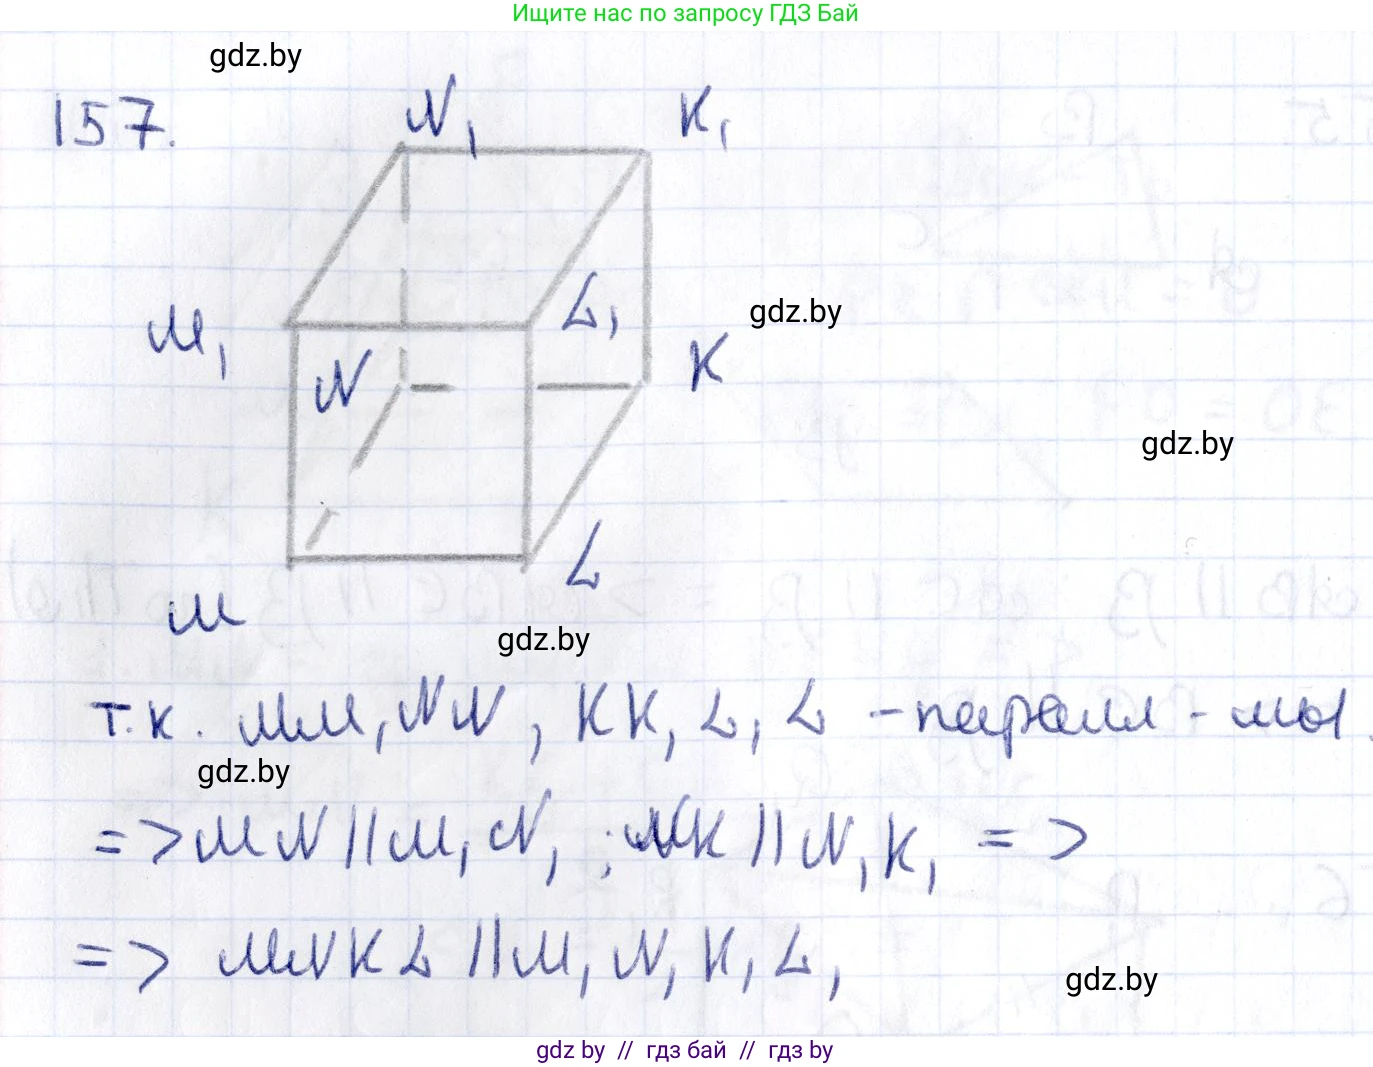 Ищите нас по запросу ГДЗ Бай
gdz.by
157.
N₁ K₁
M₁ L₁ gdz.by
N K
gdz.by
L
M
gdz.by
т.к. MM₁NN₁, KK₁L₁L – паралл-мы.
gdz.by
=> MN || M₁N₁; NK || N₁K₁ =>
=> MNKL || M₁N₁K₁L₁
gdz.by
gdz by // гдз бай // гдз by